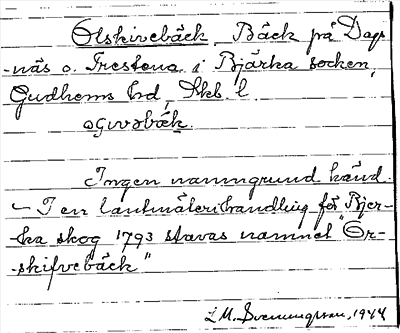 Olskivebäck, Bäck på Dags-
-näs o. Trestena i Bjärka socken,
Gudhems hd, Skb. l.
Ingen namngrund känd.
– I en lantmäterihandling för Bjer-
-ka skog 1793 stavas namnet "Or-
-skifvebäck"
L.M. Svenungsson, 1944